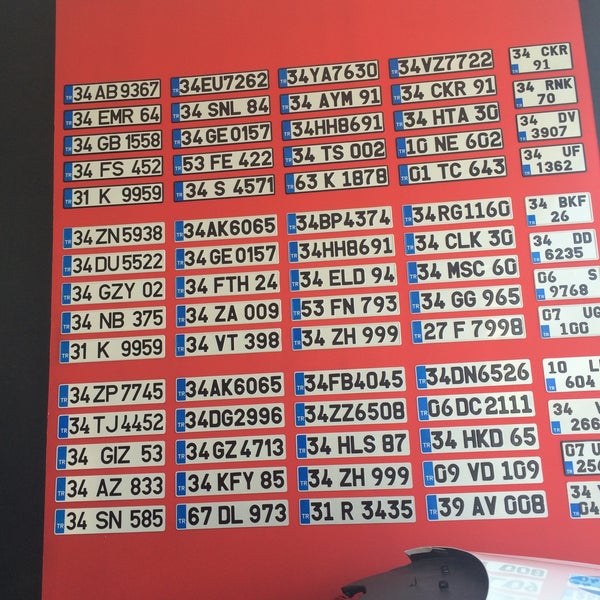 34 AB 9367
34 EMR 64
34 GB 1558
34 FS 452
31 K 9959
34 EU 7262
34 SNL 84
34 GE 0157
53 FE 422
34 S 4571
34 YA 7630
34 AYM 91
34 HH 8691
34 TS 002
63 K 1878
34 VZ 7722
34 CKR 91
34 HTA 30
10 NE 602
01 TC 643
34 CKR
91
34 RNK
70
34 DV
3907
34 UF
1362
34 ZN 5938
34 DU 5522
34 GZY 02
34 NB 375
31 K 9959
34 AK 6065
34 GE 0157
34 FTH 24
34 ZA 009
34 VT 398
34 BP 4374
34 HH 8691
34 ELD 94
53 FN 793
34 ZH 999
34 RG 1160
34 CLK 30
34 MSC 60
34 GG 965
27 F 7998
34 BKF
26
34 DD
6235
06 S
9768
07 UG
100
34 ZP 7745
34 TJ 4452
34 GIZ 53
34 AZ 833
34 SN 585
34 AK 6065
34 DG 2996
34 GZ 4713
34 KFY 85
67 DL 973
34 FB 4045
34 ZZ 6508
34 HLS 87
34 ZH 999
31 R 3435
34 DN 6526
06 DC 2111
34 HKD 65
09 VD 109
39 AV 008
10
604
34
266
07 U
256
34
04